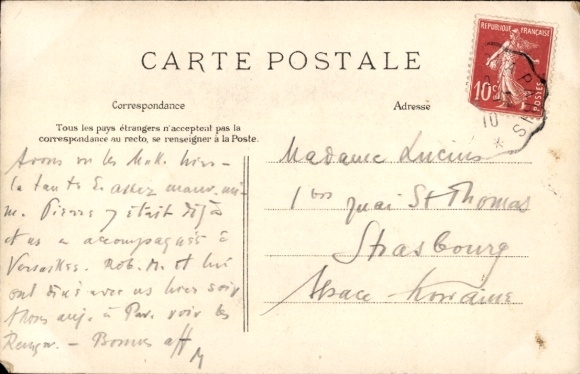 CARTE POSTALE
RÉPUBLIQUE FRANÇAISE
10c
POSTES
PARIS
10
Correspondance
Adresse
Tous les pays étrangers n'acceptent pas la
correspondance au recto, se renseigner à la Poste.
Avons vu les hier
la tante E. assez
m. Pierre y était déjà
et ns a accompagnés à
Versailles. Rob. M. et lui
ont dîné avec ns hier soir
à Par. voir les
Bonnes aff
M
Madame Lucius
1 bis quai St Thomas
Strasbourg
Alsace-Lorraine